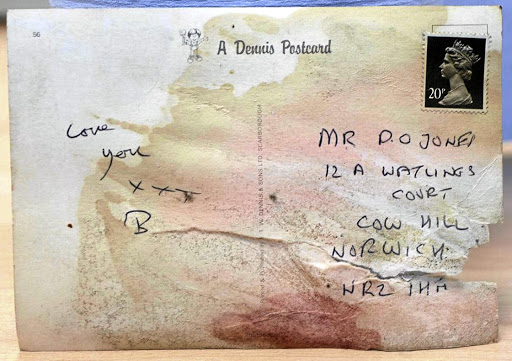 56
A Dennis Postcard
20P
Love
you
xxx
B
W. DENNIS & SONS LTD. SCARBOROUGH
MR D.O JONES
12 A WATLINGS
COURT
COW HILL
NORWICH.
NR2 1HH